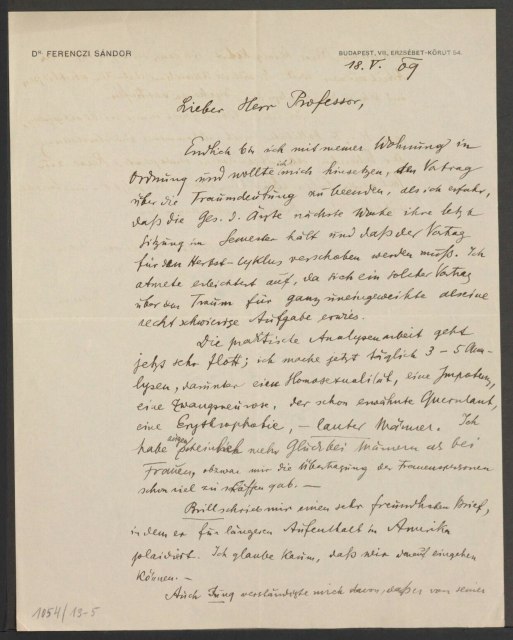 Dr. FERENCZI SÁNDOR
BUDAPEST, VII, ERZSÉBET-KÖRUT 54.
18. V. 09
Lieber Herr Professor,
Endlich bin ich mit meiner Wohnung in
Ordnung und wollte ich mich hinsetzen, den Vortrag
über die Traumdeutung zu beenden, als ich erfuhr,
daß die Ges. d. Ärzte nächste Woche ihre letzte
Sitzung im Semester hält und daß der Vortrag
für den Herbst-Cyklus verschoben werden muß. Ich
atmete erleichtert auf, da sich ein solcher Vortrag
über den Traum für ganz uneingeweihte als eine
recht schwierige Aufgabe erwies.
Die praktische Analysenarbeit geht
jetzt sehr flott; ich mache jetzt täglich 3 – 5 Ana-
lysen, darunter eine Homosexualität, eine Impotenz,
eine Zwangsneurose, der schon erwähnte Querulant,
eine Erythrophobie, – lauter Männer. Ich
habe augenscheinlich mehr Glück bei Männern als bei
Frauen, obzwar mir die Übertragung der Frauenspersonen
schon viel zu schaffen gab. –
Brill schrieb mir einen sehr freundlichen Brief,
in dem er für längeren Aufenthalt in Amerika
plaidiert. Ich glaube kaum, daß wir darauf eingehen
können. –
Auch Jung verständigte mich davon, daß er von seiner
1054/13-5